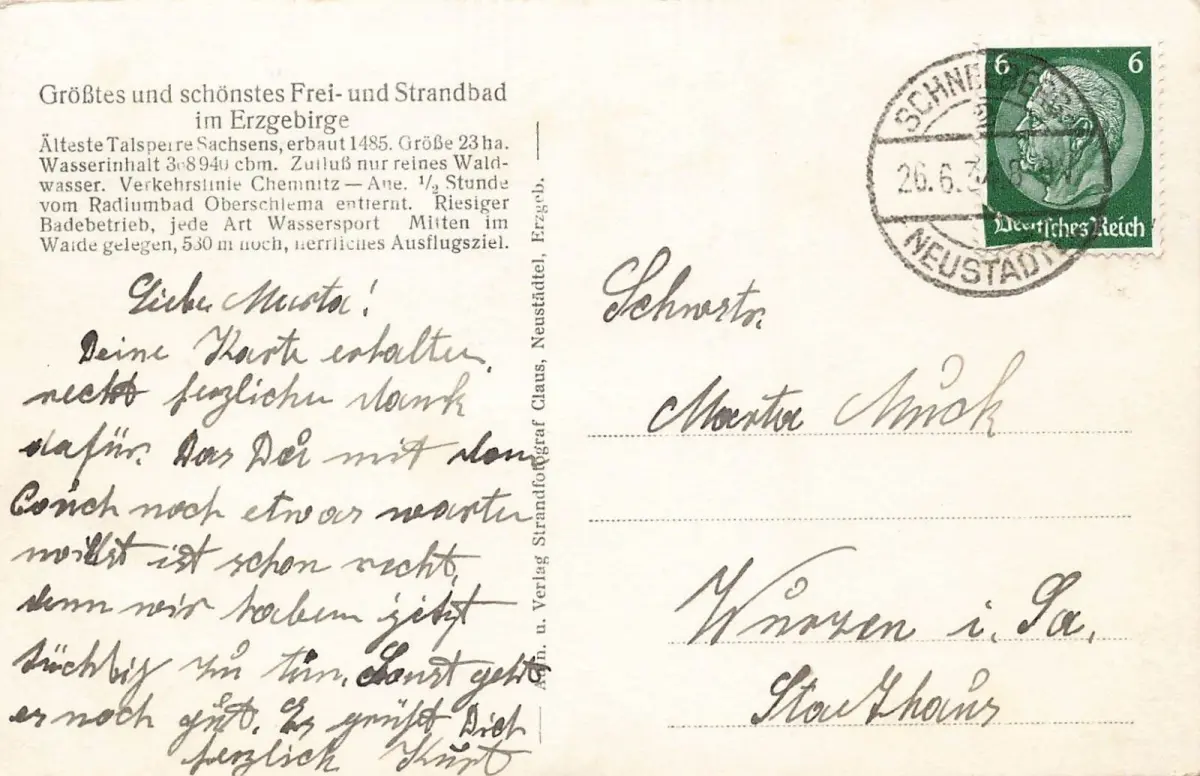 Größtes und schönstes Frei- und Strandbad
im Erzgebirge
Älteste Talsperre Sachsens, erbaut 1485. Größe 23 ha.
Wasserinhalt cbm. Zufluß nur reines Wald-
wasser. Verkehrslinie Chemnitz — Aue. 1/2 Stunde
vom Radiumbad Oberschlema entfernt. Riesiger
Badebetrieb, jede Art Wassersport Mitten im
Walde gelegen, 530 m hoch, herrliches Ausflugsziel.
Liebe Marta!
Deine Karte erhalten,
recht herzlichen dank
dafür. Das Du mit dem
Couch noch etwas warten
willst ist schon recht,
denn wir haben jetzt
tüchtig zu tun. Sonst geht
es noch gut. Es grüßt Dich
herzlich Kurt
u. Verlag Strandfotograf Claus, Neustädtel, Erzgeb.
SCHNEEBERG
2
26.6.34.8
NEUSTÄDTEL
6 6
Deutsches Reich
Schwstr.
Marta Muck
Wurzen i. Sa.
Stadthaus